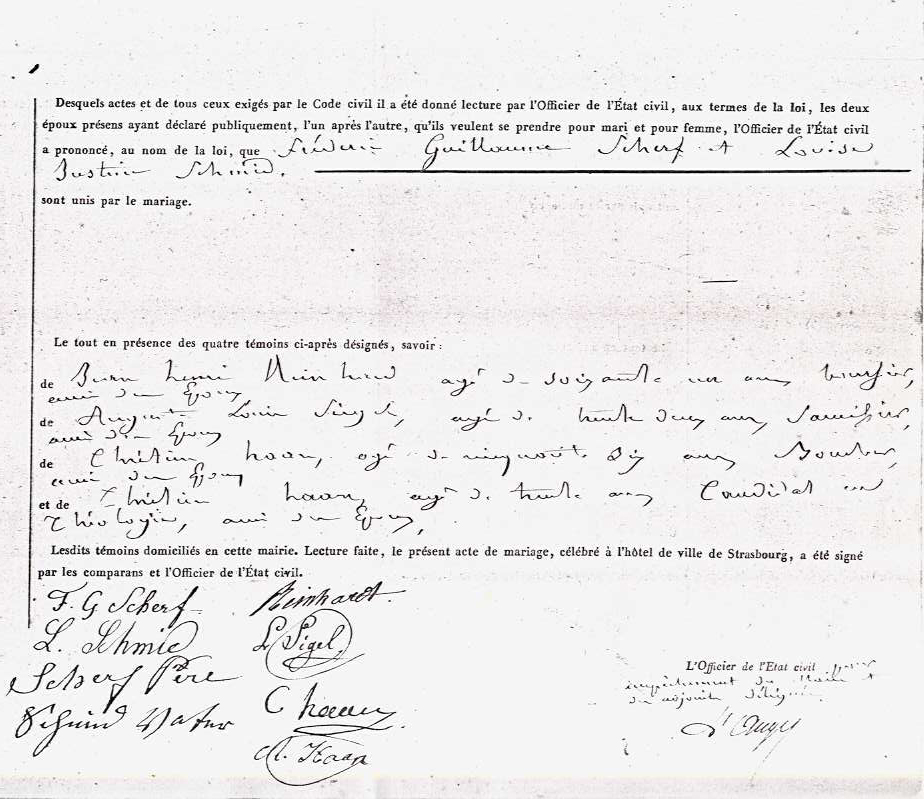 Desquels actes et de tous ceux exigés par le Code civil il a été donné lecture par l'Officier de l'État civil, aux termes de la loi, les deux
époux présens ayant déclaré publiquement, l'un après l'autre, qu'ils veulent se prendre pour mari et pour femme, l'Officier de l'État civil
a prononcé, au nom de la loi, que Fréderic Guillaume Scherf et Louise
Justine Schmid.
sont unis par le mariage.
Le tout en présence des quatre témoins ci-après désignés, savoir :
de Jean henri Reinhard agé de soixante un ans,
ami des Epoux
de Auguste Louis Sigel, agé de trente deux ans
ami des Epoux
de Chrétien haan, agé de cinquante six ans
ami des Epoux
et de Chrétien haan, agé de trente ans Candidat en
Théologie, ami des Epoux,
Lesdits témoins domiciliés en cette mairie. Lecture faite, le présent acte de mariage, célébré à l'hôtel de ville de Strasbourg, a été signé
par les comparans et l'Officier de l'État civil.
F. G Scherf Reinhardt
L. Schmid L Sigel
Scherf Père
Schmid Vater C haan
Haan
L'Officier de l'Etat civil pour
empêchement du Maire
adjoint délégué